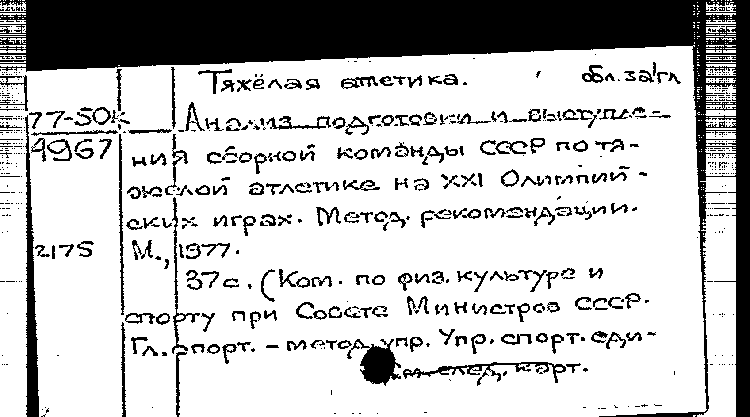 Тяжёлая атлетика. обл. загл
77-50к Анализ подготовки и выступле-
4967 ния сборной команды СССР по тя-
желой атлетике на XXI Олимпий-
ских играх. Метод. рекомендации.
2175 М., 1977.
37с. (Ком. по физ. культуре и
спорту при Совете Министров СССР.
Гл. спорт. - метод. упр. Упр. спорт. еди-
См. след. карт.